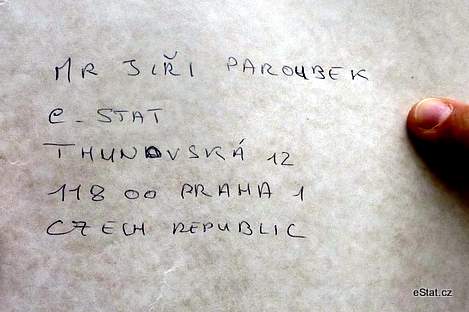 MR JIŘI PAROUBEK
e-STAT
THUNOVSKÁ 12
118 00 PRAHA 1
CZECH REPUBLIC
eStat.cz